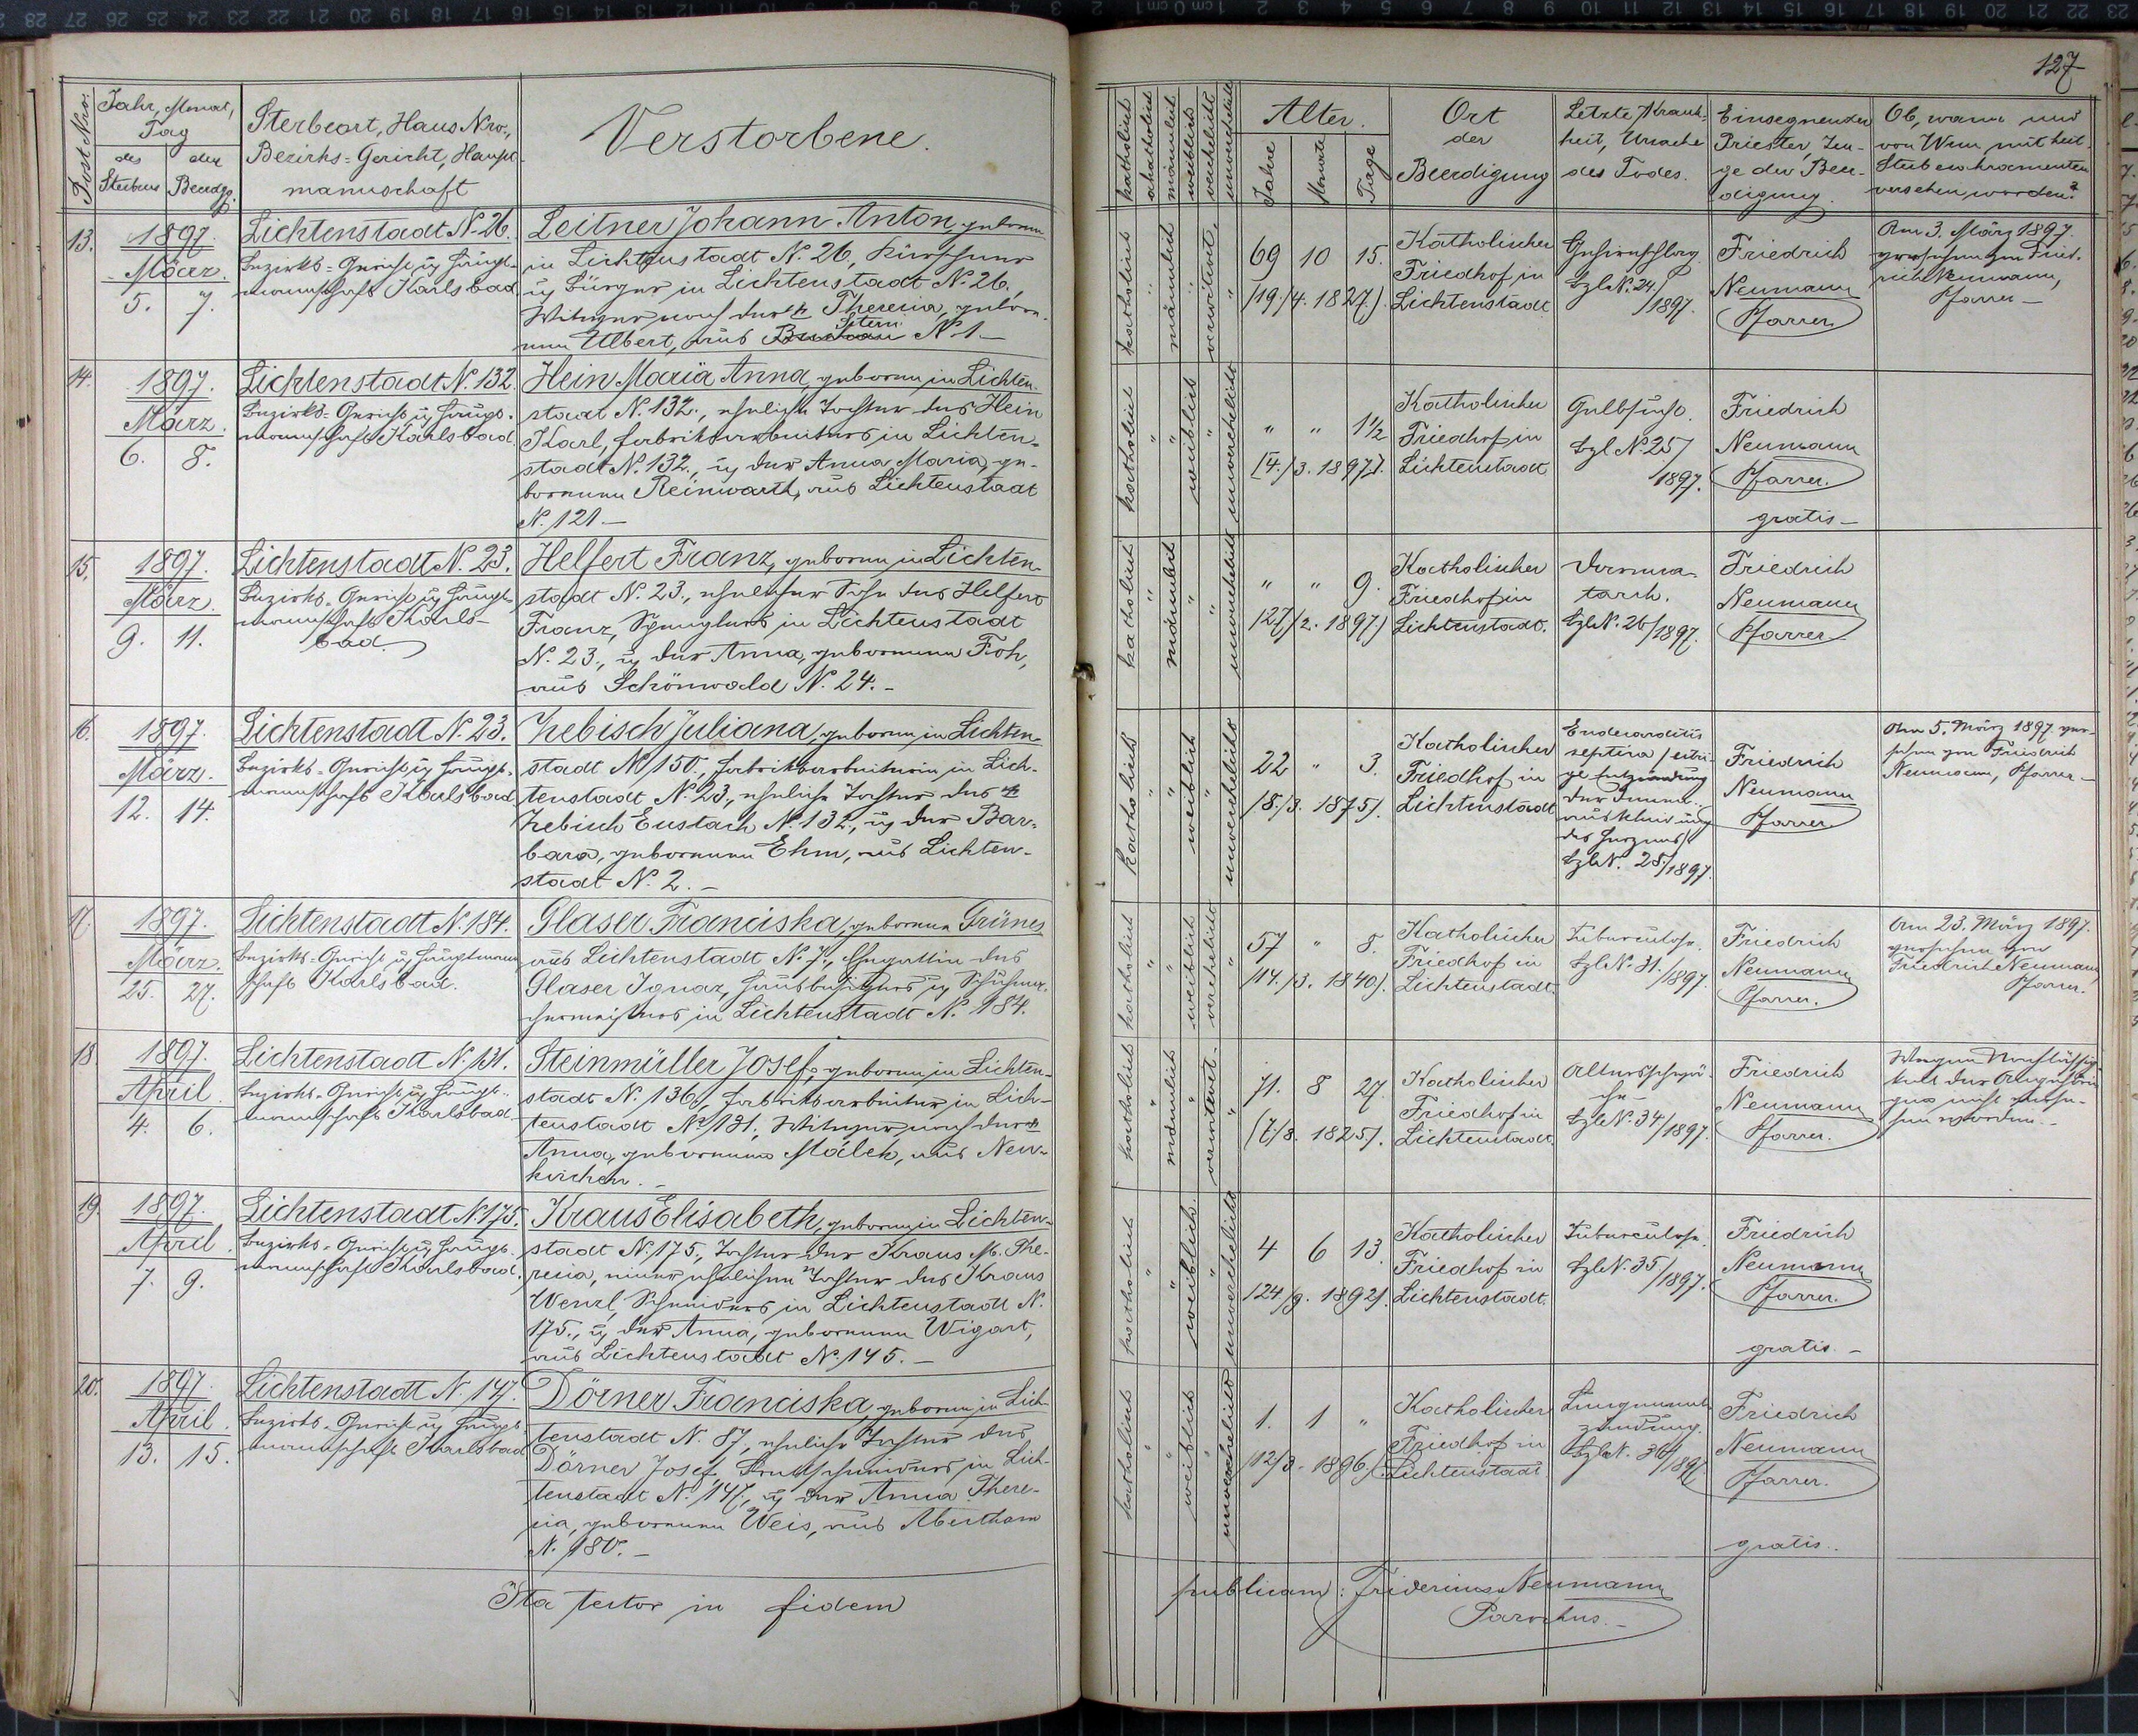 127
Post Nro.
Jahr, Monat,
Tag
des Sterbens
der Beerdgg.
Sterbeort, Haus Nro.,
Bezirks-Gericht, Haupt-
mannschaft
Verstorbene.
katholisch
akatholisch
männlich
weiblich
verehelicht
unverehelicht
Alter.
Jahre
Monate
Tage
Ort
der
Beerdigung
Letzte Krank-
heit, Ursache
des Todes.
Einsegnender
Priester, Zeu-
ge der Beer-
digung.
Ob, wann und
von Wem mit heil.
Sterbesakramenten
versehen worden?
13.
1897.
März.
5. 7.
Lichtenstadt N. 26.
Bezirks-Gericht u Haupt-
mannschaft Karlsbad
Leitner Johann Anton, geboren
in Lichtenstadt N. 26, Kürschner
u Bürger in Lichtenstadt N. 26.,
Witwer nach der † Theresia, gebore-
nen Ulbert, aus N. 1.
katholisch
männlich
verwitwet
69 10 15.
(19./4. 1827.)
Katholischer
Friedhof in
Lichtenstadt
Gehirnschlag
Bzl N. 24./
1897.
Friedrich
Neumann
Pfarrer.
Am 3. März 1897.
versehen von Fried-
rich Neumann,
Pfarrer
14.
1897.
März.
6. 8.
Lichtenstadt N. 132.
Bezirks-Gericht u Haupt-
mannschaft Karlsbad.
Hein Maria Anna, geboren in Lichten-
stadt N. 132., eheliche Tochter des Hein
Karl, Fabriksarbeiters in Lichten-
stadt N. 132., u der Anna Maria, ge-
borenen Reinwarth, aus Lichtenstadt
N. 121.
katholisch
weiblich
unverehelicht
" " 1½
(4./3. 1897.)
Katholischer
Friedhof in
Lichtenstadt
Gelbsucht
Bzl N. 25/
1897.
Friedrich
Neumann
Pfarrer.
gratis
15.
1897.
März.
9. 11.
Lichtenstadt N. 23.
Bezirks-Gericht u Haupt-
mannschaft Karls-
bad.
Helfert Franz, geboren in Lichten-
stadt N. 23., ehelicher Sohn des Helfert
Franz, Spenglers in Lichtenstadt
N. 23., u der Anna, geborenen Froh,
aus Schönwald N. 24.
katholisch
männlich
unverehelicht
" " 9.
(27./2. 1897)
Katholischer
Friedhof in
Lichtenstadt.
Darmka-
tarrh.
Bzl N. 26/1897.
Friedrich
Neumann
Pfarrer
16.
1897.
März.
12. 14.
Lichtenstadt N. 23.
Bezirks-Gericht u Haupt-
mannschaft Karlsbad
Zebisch Juliana, geboren in Lichten-
stadt N. 150., Fabriksarbeiterin in Lich-
tenstadt N. 23., eheliche Tochter des †
Zebisch Eustach N. 132., u der Bar-
bara, geborenen Ehm, aus Lichten-
stadt N. 2.
katholisch
weiblich
unverehelicht
22 " 3.
(8./3. 1875).
Katholischer
Friedhof in
Lichtenstadt
Endocarditis
septica (eitri-
ge Entzündung
der Innen-
auskleidung
des Herzens)
Bzl N. 28./1897.
Friedrich
Neumann
Pfarrer.
Am 5. März 1897 ver-
sehen von Friedrich
Neumann, Pfarrer
17.
1897.
März.
25. 27.
Lichtenstadt N. 184.
Bezirks-Gericht u Hauptmann
schaft Karlsbad.
Glaser Franciska, geborene Grünes
aus Lichtenstadt N. 7., Ehegattin des
Glaser Ignaz, Hausbesitzers u Schuhma-
chermeisters in Lichtenstadt N. 184.
katholisch
weiblich
verehelicht
57 " 8.
(17./3. 1840).
Katholischer
Friedhof in
Lichtenstadt.
Tuberculose.
Bzl N. 31./1897.
Friedrich
Neumann
Pfarrer.
Am 23. März 1897.
versehen von
Friedrich Neumann,
Pfarrer.
18.
1897.
April.
4. 6.
Lichtenstadt N. 131.
Bezirks-Gericht u Haupt-
mannschaft Karlsbad.
Steinmüller Josef, geboren in Lichten-
stadt N. 136, Fabriksarbeiter in Lich-
tenstadt N. 131., Witwer nach der †
Anna, geborenen Málek, aus Neu-
kirchen.
katholisch
männlich
verwitwet.
71. 8 27.
(7./8. 1825).
Katholischer
Friedhof in
Lichtenstadt.
Altersschwä-
che
Bzl N. 34/1897.
Friedrich
Neumann
Pfarrer.
Wegen Nachlässig-
keit der Angehöri-
gen nicht verse-
hen worden.
19.
1897.
April.
7. 9.
Lichtenstadt N. 175.
Bezirks-Gericht u Haupt-
mannschaft Karlsbad.
Kraus Elisabeth, geboren in Lichten-
stadt N. 175., Tochter der Kraus M. The-
resia, einer ehelichen Tochter des Kraus
Wenzl, Schneiders in Lichtenstadt N.
175., u der Anna, geborenen Wigart,
aus Lichtenstadt N. 145.
katholisch
weiblich.
unverehelicht
4 6 13.
(24./9. 1892).
Katholischer
Friedhof in
Lichtenstadt.
Tuberculose.
Bzl N. 35/1897.
Friedrich
Neumann
Pfarrer.
gratis.
20.
1897.
April.
13. 15.
Lichtenstadt N. 147.
Bezirks-Gericht u Haupt-
mannschaft Karlsbad
Dörner Franciska, geboren in Lich-
tenstadt N. 87, eheliche Tochter des
Dörner Josef, in Lich-
tenstadt N. 147., u der Anna There-
sia, geborenen Weis, aus Abertham
N. 180.
katholisch
weiblich
unverehelicht
1. 1 "
(12/3. 1896.)
Katholischer
Friedhof in
Lichtenstadt
Lungenent-
zündung.
Bzl N. 36/1897
Friedrich
Neumann
Pfarrer.
gratis.
Ita testor in fidem
publicam: Fridericus Neumann
Parochus.